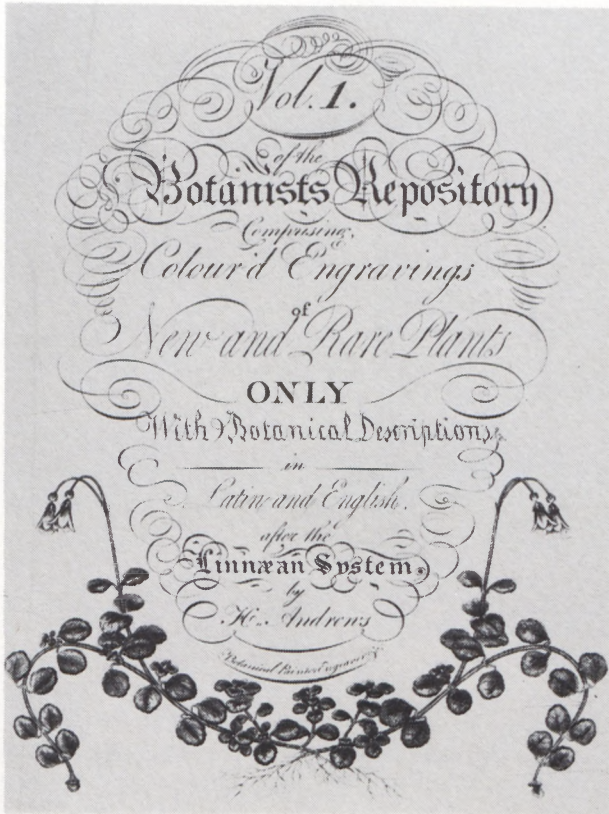 Vol. 1.
of the
Botanists Repository
Comprising
Colour'd Engravings
of
New and Rare Plants
ONLY
With Botanical Descriptions
in
Latin and English.
after the
Linnæan System.
by
H. Andrews
Botanical Painter